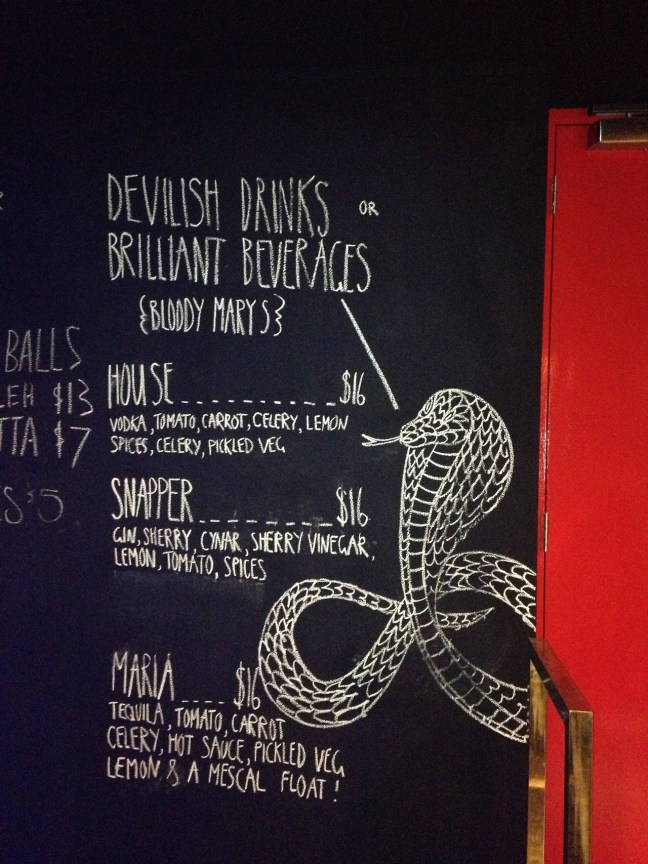 DEVILISH DRINKS OR
BRILLIANT BEVERAGES
{BLOODY MARYS}
HOUSE____________$16
VODKA, TOMATO, CARROT, CELERY, LEMON
SPICES, CELERY, PICKLED VEG
SNAPPER__________$16
GIN, SHERRY, CYNAR, SHERRY VINEGAR,
LEMON, TOMATO, SPICES
MARIA____$16
TEQUILA, TOMATO, CARROT
CELERY, HOT SAUCE, PICKLED VEG
LEMON & A MESCAL FLOAT!
BALLS
$13
$7
$5